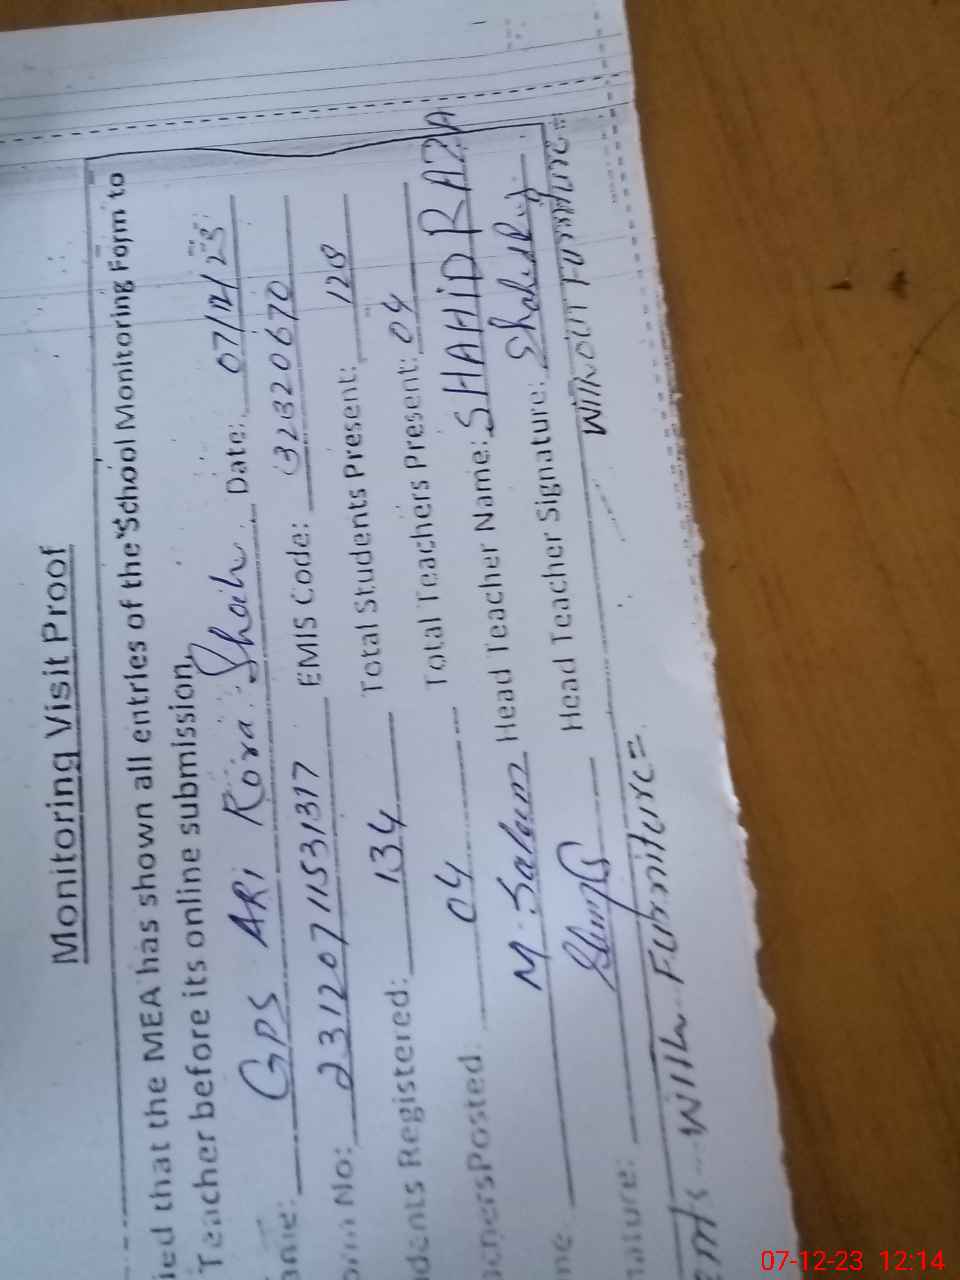 Monitoring Visit Proof
ied that the MEA has shown all entries of the School Monitoring Form to
Teacher before its online submission,
GPS ARi Rora Shah Date: 07/12/23
No: 23120711531317 EMIS Code: 32320670
dents Registered: 134 Total Students Present: 128
Posted: 04 Total Teachers Present: 04
me M. Saleem Head Teacher Name: SHAHID RAZA
nature: Head Teacher Signature:
With Furniture= Without Furniture=
07-12-23 12:14